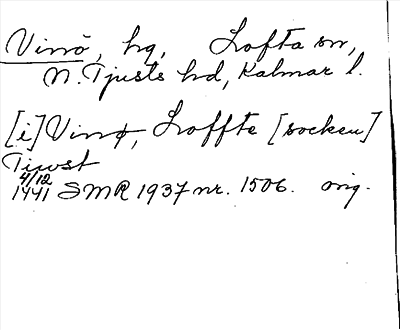 Vinö, hg, Lofta sn,
N. Tjusts hd, Kalmar l.
[i] Vinø, Loffte [socken]
Tiwst
4/12
1441 SMR 1937 nr. 1506. orig.